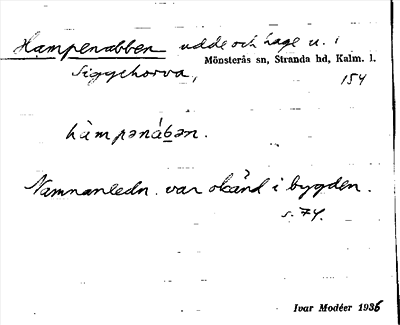 Hampenabben udde och hage u. i
Mönsterås sn, Stranda hd, Kalm. l.
Siggehorva,
154
hàmpənábən.
Namnanledn. var okänd i bygden.
s. 74.
Ivar Modéer 1936